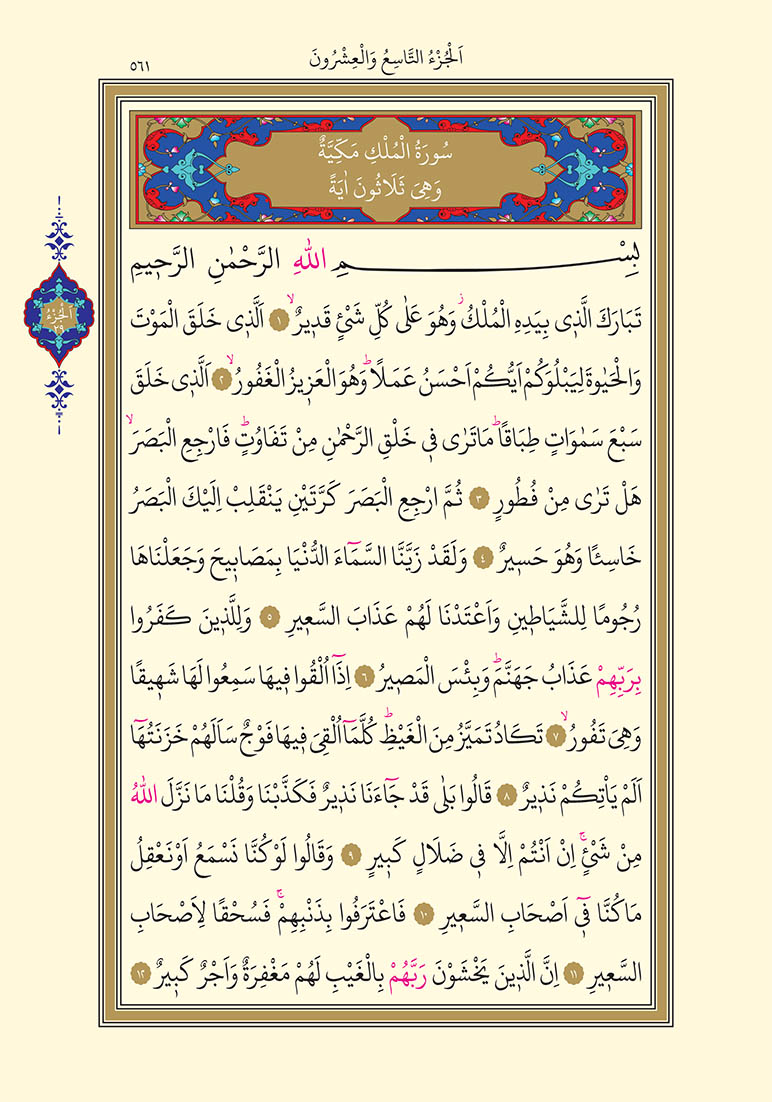 اَلْجُزْءُ التَّاسِعُ وَالْعِشْرُونَ
٥٦١
سُورَةُ الْمُلْكِ مَكِّيَّةٌ
وَهِيَ ثَلَاثُونَ اٰيَةً
اَلْجُزْءُ
٢٩
بِسْمِ اللّٰهِ الرَّحْمٰنِ الرَّحِيمِ
تَبَارَكَ الَّذِي بِيَدِهِ الْمُلْكُۘ وَهُوَ عَلٰى كُلِّ شَيْئٍ قَدِيرٌۙ ﴿١﴾ اَلَّذِي خَلَقَ الْمَوْتَ
وَالْحَيٰوةَ لِيَبْلُوَكُمْ اَيُّكُمْ اَحْسَنُ عَمَلًاۜ وَهُوَ الْعَزِيزُ الْغَفُورُۙ ﴿٢﴾ اَلَّذِي خَلَقَ
سَبْعَ سَمٰوَاتٍ طِبَاقًاۜ مَا تَرٰى فِي خَلْقِ الرَّحْمٰنِ مِنْ تَفَاوُتٍۜ فَارْجِعِ الْبَصَرَۙ
هَلْ تَرٰى مِنْ فُطُورٍ ﴿٣﴾ ثُمَّ ارْجِعِ الْبَصَرَ كَرَّتَيْنِ يَنْقَلِبْ اِلَيْكَ الْبَصَرُ
خَاسِئًا وَهُوَ حَسِيرٌ ﴿٤﴾ وَلَقَدْ زَيَّنَّا السَّمَٓاءَ الدُّنْيَا بِمَصَابِيحَ وَجَعَلْنَاهَا
رُجُومًا لِلشَّيَاطِينِ وَاَعْتَدْنَا لَهُمْ عَذَابَ السَّعِيرِ ﴿٥﴾ وَلِلَّذِينَ كَفَرُوا
بِرَبِّهِمْ عَذَابُ جَهَنَّمَۜ وَبِئْسَ الْمَصِيرُ ﴿٦﴾ اِذَٓا اُلْقُوا فِيهَا سَمِعُوا لَهَا شَهِيقًا
وَهِيَ تَفُورُۙ ﴿٧﴾ تَكَادُ تَمَيَّزُ مِنَ الْغَيْظِۜ كُلَّمَٓا اُلْقِيَ فِيهَا فَوْجٌ سَاَلَهُمْ خَزَنَتُهَٓا
اَلَمْ يَأْتِكُمْ نَذِيرٌ ﴿٨﴾ قَالُوا بَلٰى قَدْ جَٓاءَنَا نَذِيرٌ فَكَذَّبْنَا وَقُلْنَا مَا نَزَّلَ اللّٰهُ
مِنْ شَيْئٍۚ اِنْ اَنْتُمْ اِلَّا فِي ضَلَالٍ كَبِيرٍ ﴿٩﴾ وَقَالُوا لَوْ كُنَّا نَسْمَعُ اَوْ نَعْقِلُ
مَا كُنَّا فِٓي اَصْحَابِ السَّعِيرِ ﴿١٠﴾ فَاعْتَرَفُوا بِذَنْبِهِمْۚ فَسُحْقًا لِاَصْحَابِ
السَّعِيرِ ﴿١١﴾ اِنَّ الَّذِينَ يَخْشَوْنَ رَبَّهُمْ بِالْغَيْبِ لَهُمْ مَغْفِرَةٌ وَاَجْرٌ كَبِيرٌ ﴿١٢﴾